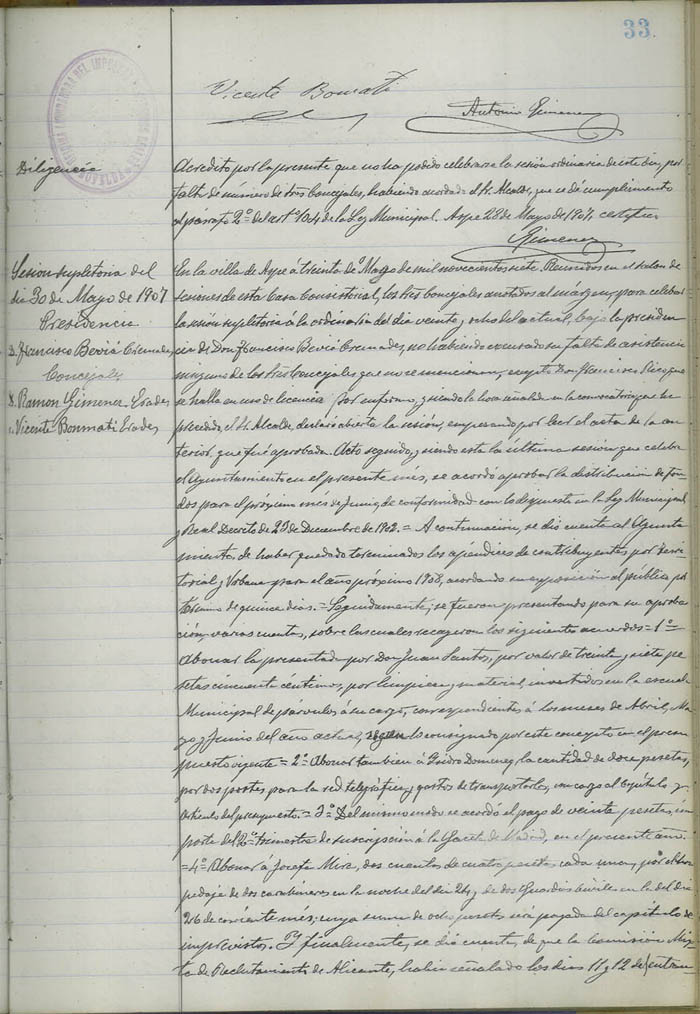 33
Vicente Bonmatí
Antonio Gimenez
Diligencia
Acredito por la presente que no ha podido celebrarse la sesión ordinaria de este dia, por
falta de número de tres Concejales, habiendo acordado el Sr. Alcalde, que se dé cumplimiento
al parrafo 2º del artº 104 de la Ley Municipal. Aspe 28 de Mayo de 1907, certifico
Gimenez
Sesion supletoria del
dia 30 de Mayo de 1907
Presidencia
D. Francisco Beviá Cremades
Concejales
D. Ramon Gimenez Erades
" Vicente Bonmati Erades
En la villa de Aspe á treinta de Mayo de mil novecientos siete. Reunidos en el salon de
sesiones de esta Casa Consistorial, los tres Concejales anotados al márgen, para celebrar
la sesión supletoria á la ordinaria del dia veinte y ocho del actual, bajo la presiden
cia de Don Francisco Beviá Cremades, no habiendo escusado su falta de asistencia
ninguno de los Concejales que no se mencionan, excepto Don Francisco Rico que
se halla en uso de licencia por enfermo, y siendo la hora señalada en la convocatoria que ha
precedido, el Sr. Alcalde, declaró abierta la sesión, empezando por leer el acta de la an
terior, que fué aprobada. Acto seguido, y siendo esta la última sesión que celebra
el Ayuntamiento en el presente mes, se acordó aprobar la distribucion de fon
dos para el próximo mes de Junio, de conformidad con lo dispuesto en la Ley Municipal
y Real Decreto de 23 de Diciembre de 1902. = A continuación, se dió cuenta al Ayunta
miento, de haber quedado terminados los apendices de contribuyentes, por Terri
torial y Urbana para el año próximo 1908, acordando su exposición al público por
término de quince dias. = Seguidamente, se fueron presentando para su aproba
ción, varias cuentas, sobre las cuales recayeron los siguientes acuerdos = 1º =
Abonar la presentada por Don Juan Santos, por valor de treinta y siete pe
setas cincuenta céntimos, por limpieza y material, invertidos en la escuela
Municipal de párvulos á su cargo, correspondientes á los meses de Abril, Ma
yo y Junio del año actual, segun lo consignado por este concepto en el presu
puesto vigente = 2º Abonar tambien á Isidro Domenech la cantidad de doce pesetas,
por dos postes para la red telegráfica y gastos de transportarlos, con cargo al Capítulo y
Articulo del presupuesto. = 3º Del mismo modo se acordó el pago de veinte pesetas, im
porte del 2º trimestre de suscripción á la Gaceta de Madrid, en el presente año.
= 4º Abonar á Josefa Mira, dos cuentas de cuatro pesetas cada una, por el hos
pedaje de dos carabineros en la noche del dia 24 y de dos Guardias Civiles en la del dia
26 de corriente mes; cuya suma de ocho pesetas será pagada del capítulo de
imprevistos. Y finalmente, se dió cuenta, de que la Comisión Mix
ta de Reclutamiento de Alicante, habia señalado los dias 11 y 12 del entran-